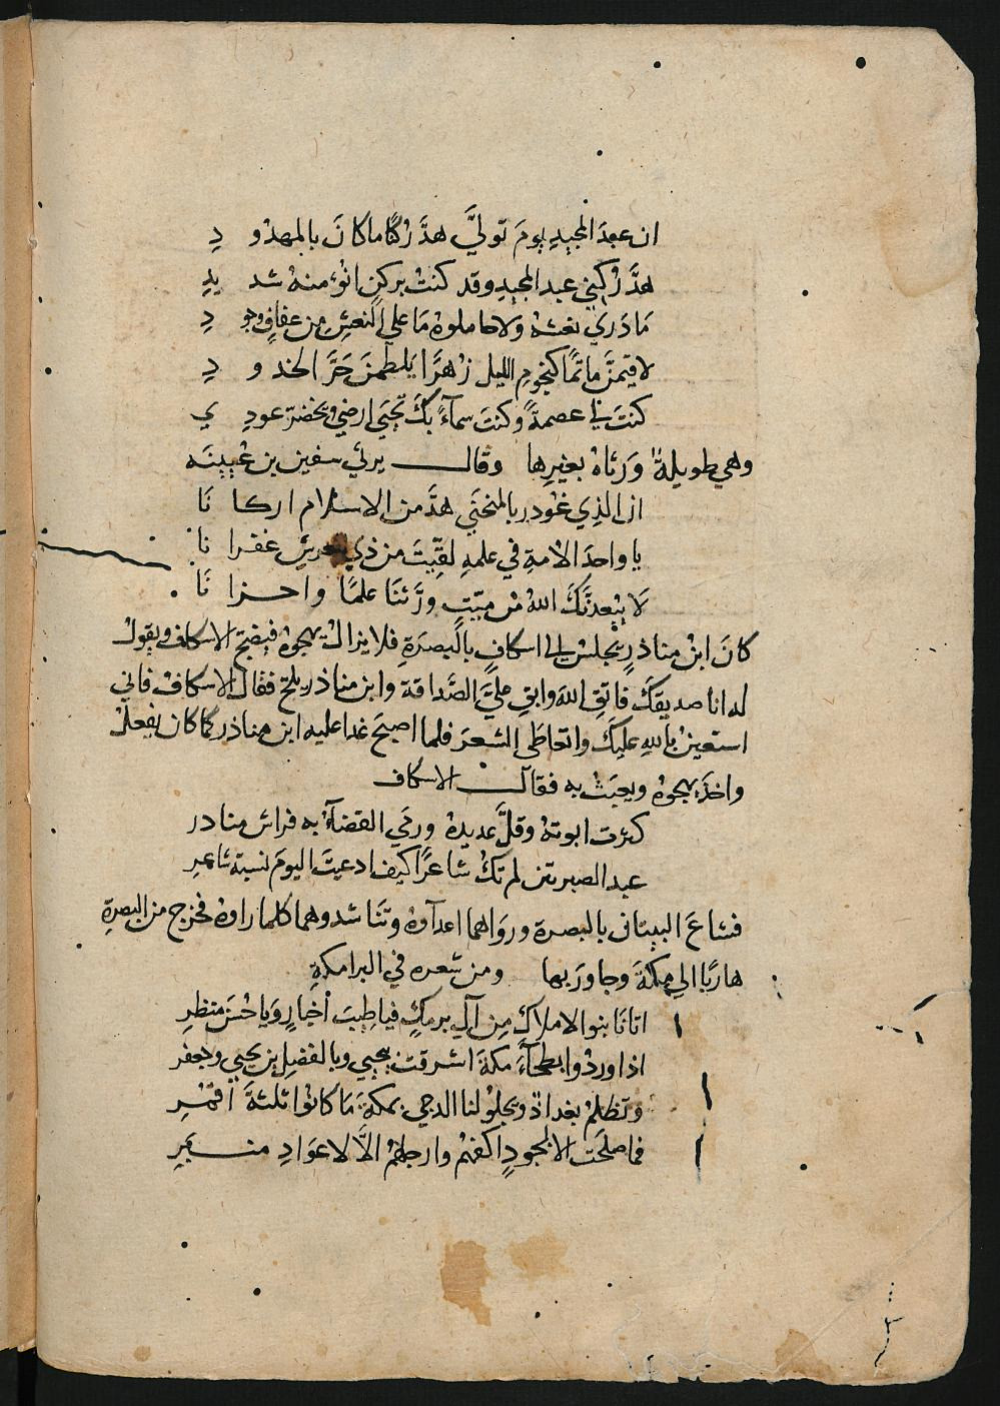 ان عبدَ المجيدِ يومَ توليَّ هدَّ رُكنًا ما كانَ بالمهدُو دِ
هدَّ رُكني عبد المجيدِ وقد كنتُ بركنٍ انوُء منهُ شد يدِ
مَا دَرَي نعشهُ ولا حاملوهُ مَا علي النعشِ مِن عفافٍ وجو دِ
لاقيمنَّ ماتمًا كنجومِ الليل زُهرًا يَلطمنَ حَرَّ الخد و دِ
كنتَ لي عصمةً وكنتَ سمآءً بكَ تحيَي ارضي ويخضرّ عودِ ي
وهي طويلةٌ وَرَثاهُ بغيرِها وقال يرثي سفين بن عُيينَه
ان الذِي غوُدر بالمنحنَي هدَّ من الاسلام اركا نَا
يا واحدَ الامةِ في علمهِ لقِّيتَ من ذي العرش غفرا نا
لا يُبعدنكَ اللهُ من ميّتٍ ورَّثنَا علمًا واحزا نَا
كانَ ابنُ مناذرٍ يجلسُ الي اسكافٍ بالبصرَةِ فلا يزالُ يهجوهُ فيضجّ الاسكاف ويقولُ
له انا صديقكَ فاتقِ اللهَ وابقِ عليَّ الصَّداقة وابن مناذر يلحّ فقال الاسكافُ فاني
استعينُ باللهِ عليكَ واتعاطَى الشعرَ فلما اصبحَ غدا عليه ابن مناذر كما كان يفعلُ
واخذَ يهجوهُ ويعبَثُ به فقال الاسكاف
كثرت ابوتهُ وقلَّ عديدهُ ورمَي القضآءُ به فراش مناذر
عبد الصبريّين لم تكُ شاعرًا كيف ادعيتَ اليومَ نسبة شاعرِ
فشاعَ البيتان بالبصرة وروَاهما اعدآوهُ وتنَاشدوهما كلما راوهُ فخرج من البصرةِ
هاربًا الي مكةَ وجاورَ بها ومن شعره في البرامكةِ
اتانَا بنوا الاملاكِ مِن آلِ برمكٍ فيا طِيبَ أخبارٍ وَيا حُسنَ منظرِ
اذا وردُوا بطحآءَ مكةَ اشرقت بيحيي وبالفضلِ بن يحيي وجعفر
وتظلمُ بغداذُ ويجلوُ لنا الدجي بمكةَ مَا كانُوا ثلثةَ أقمُرِ
فما صلحَت الا لجودٍ اكفهُم وارجلهُم الَّا لاعوَادِ منبَرِ